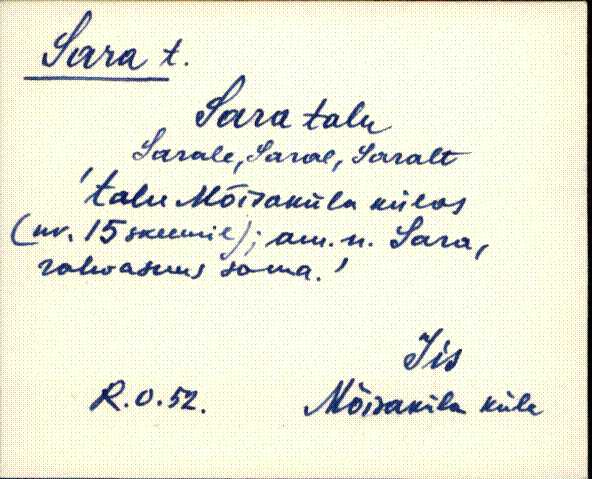 Sara t.
Sara talu
Sarale, Saral, Saralt
'talu Mõisaküla külas
(nr. 15 skeemil); am. n. Sara,
rahvasuus sama.'
Jis
R.O.52.
Mõisaküla küla